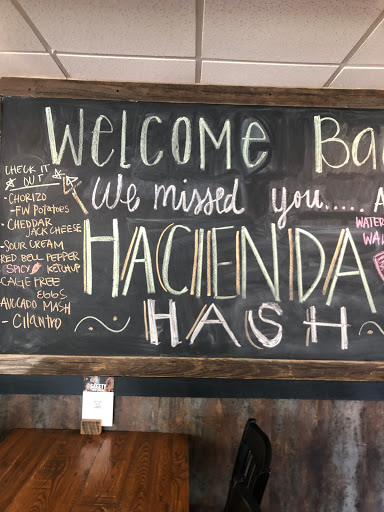 WELCOME Ba
We missed you..... A
CHECK IT
OUT
- CHORIZO
- FW Potatoes
- CHEDDAR
JACK CHEESE
- SOUR CREAM
RED BELL PEPPER
SPICY KETCHUP
CAGE FREE
EGGS
AVOCADO MASH
- Cilantro
HACIENDA
HASH
WATER